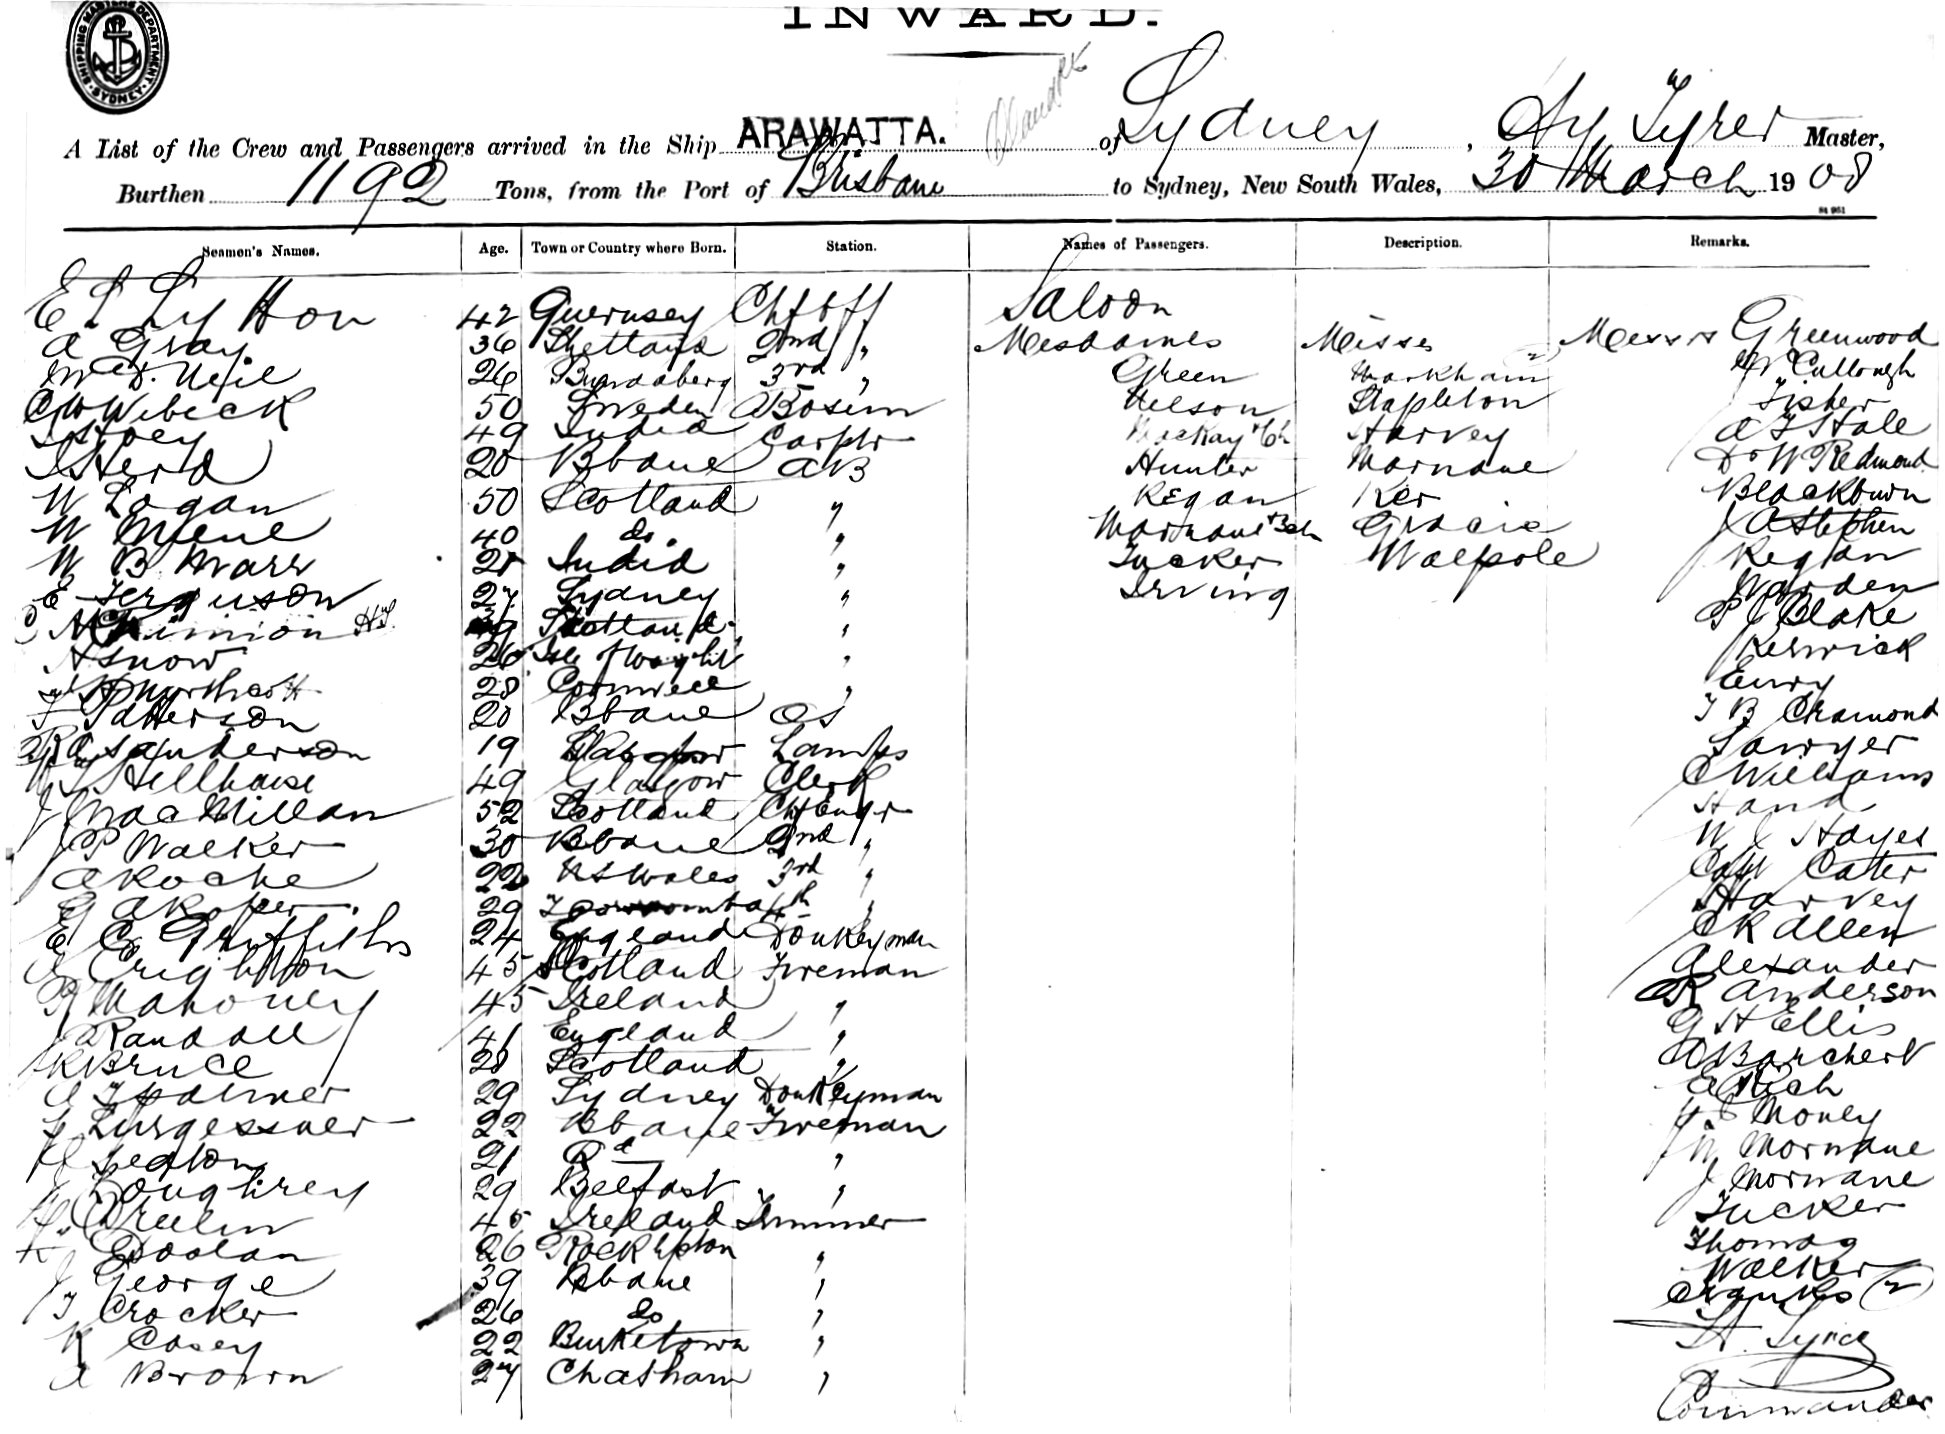 INWARD.
SHIPPING MASTERS DEPARTMENT SYDNEY
A List of the Crew and Passengers arrived in the Ship ARAWATTA. of Sydney, Hy Tyrer Master,
Burthen 1192 Tons, from the Port of Brisbane to Sydney, New South Wales, 30 March 1908
Seamen's Names. Age. Town or Country where Born. Station. Names of Passengers. Description. Remarks.
42 Guernsey Ch Off Saloon Greenwood
A Gray 36 Shetland 2nd " Mesdames Misses Messrs
26 Bundaberg 3rd " Green Markham (2) McCullough
50 Sweden Bosun Nelson Stapleton Fisher
49 India Carptr MacKay & Ch Harvey A F Hale
Herd 20 Bbane AB Hunter Marnane D & W Redmond
W Logan 50 Scotland " Regan Ker Blackburn
W Milne 40 do. " Marnane & 3 Ch Gracie J A Stephen
W B Marr 28 India " Tucker Walpole Regan
E Ferguson 27 Sydney " Irving Warden
McKinnon 39 Scotland " P J Blake
H Snow 26 Isle of Wight " Keswick
Northcott 28 Cornwall "
F Patterson 20 Bbane OS T B Cramond
Sanderson 19 Glasgow Lamps Sawyer
49 Glasgow Clerk C Williams
J MacMillan 52 Scotland Ch Engr Hand
J P Walker 30 Bbane 2nd " W J Hayes
A Roche 22 N S Wales 3rd " Capt Cater
G A Roper 29 Toowoomba 4th " Harvey
E C Griffiths 24 England Donkeyman C R Allen
Crighton 45 Scotland Fireman Alexander
P Mahoney 45 Ireland " R Anderson
J Randall 41 England " G H Ellis
R Bruce 28 Scotland " A Barchert
29 Sydney Donkeyman E Rich
22 Bbane Fireman Money
21 " W Marnane
29 Belfast " J Marnane
45 Ireland Trimmer Tucker
26 Rockhpton " Thomas
J George 39 Bbane " Walker
T Crocker 26 do " Franks (2)
K Casey 22 Burketown " H. Tyrer
A Brown 27 Chatham " Commander